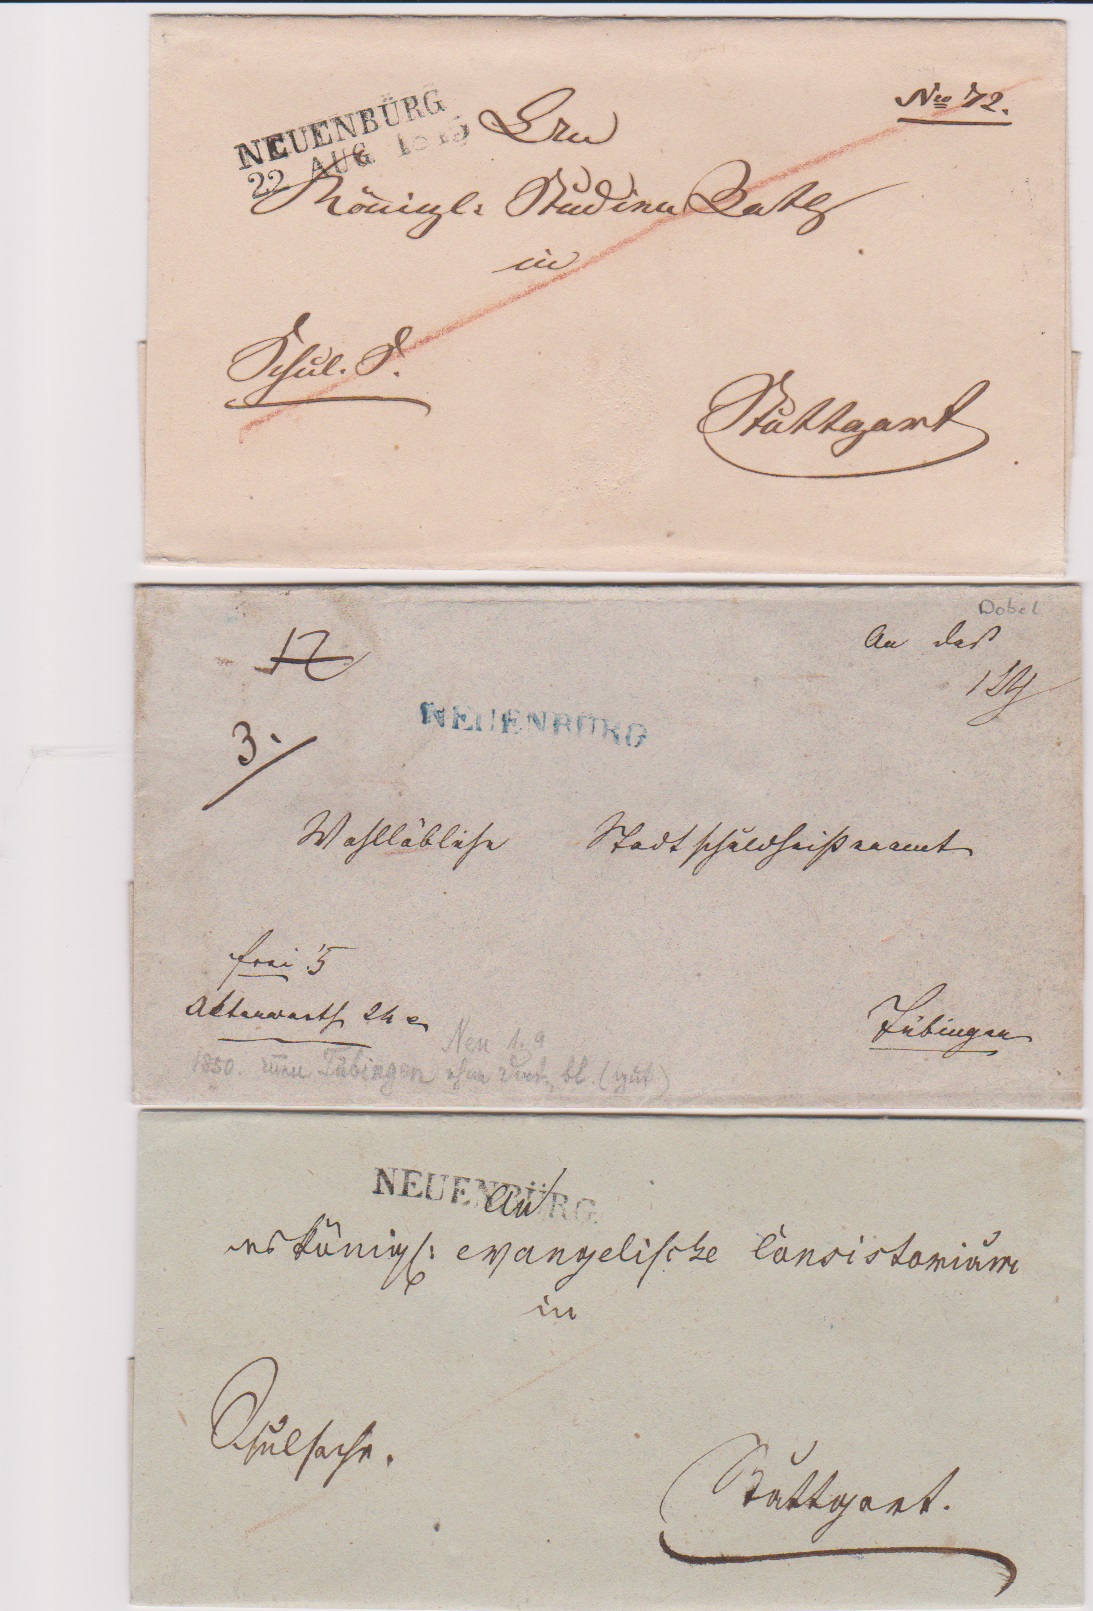 NEUENBÜRG
22 AUG 18
No 72.
Königl: Studien Rath
in
Schul. S.
Stuttgart
Dobel
An das
12
3.
NEUENBÜRG
Wohllöbliche Stadtschuldheißenamt
frei 5
Tübingen
1850. Tübingen
NEUENBÜRG
An
Königl: evangelische Consistorium
in
Schulsache.
Stuttgart.